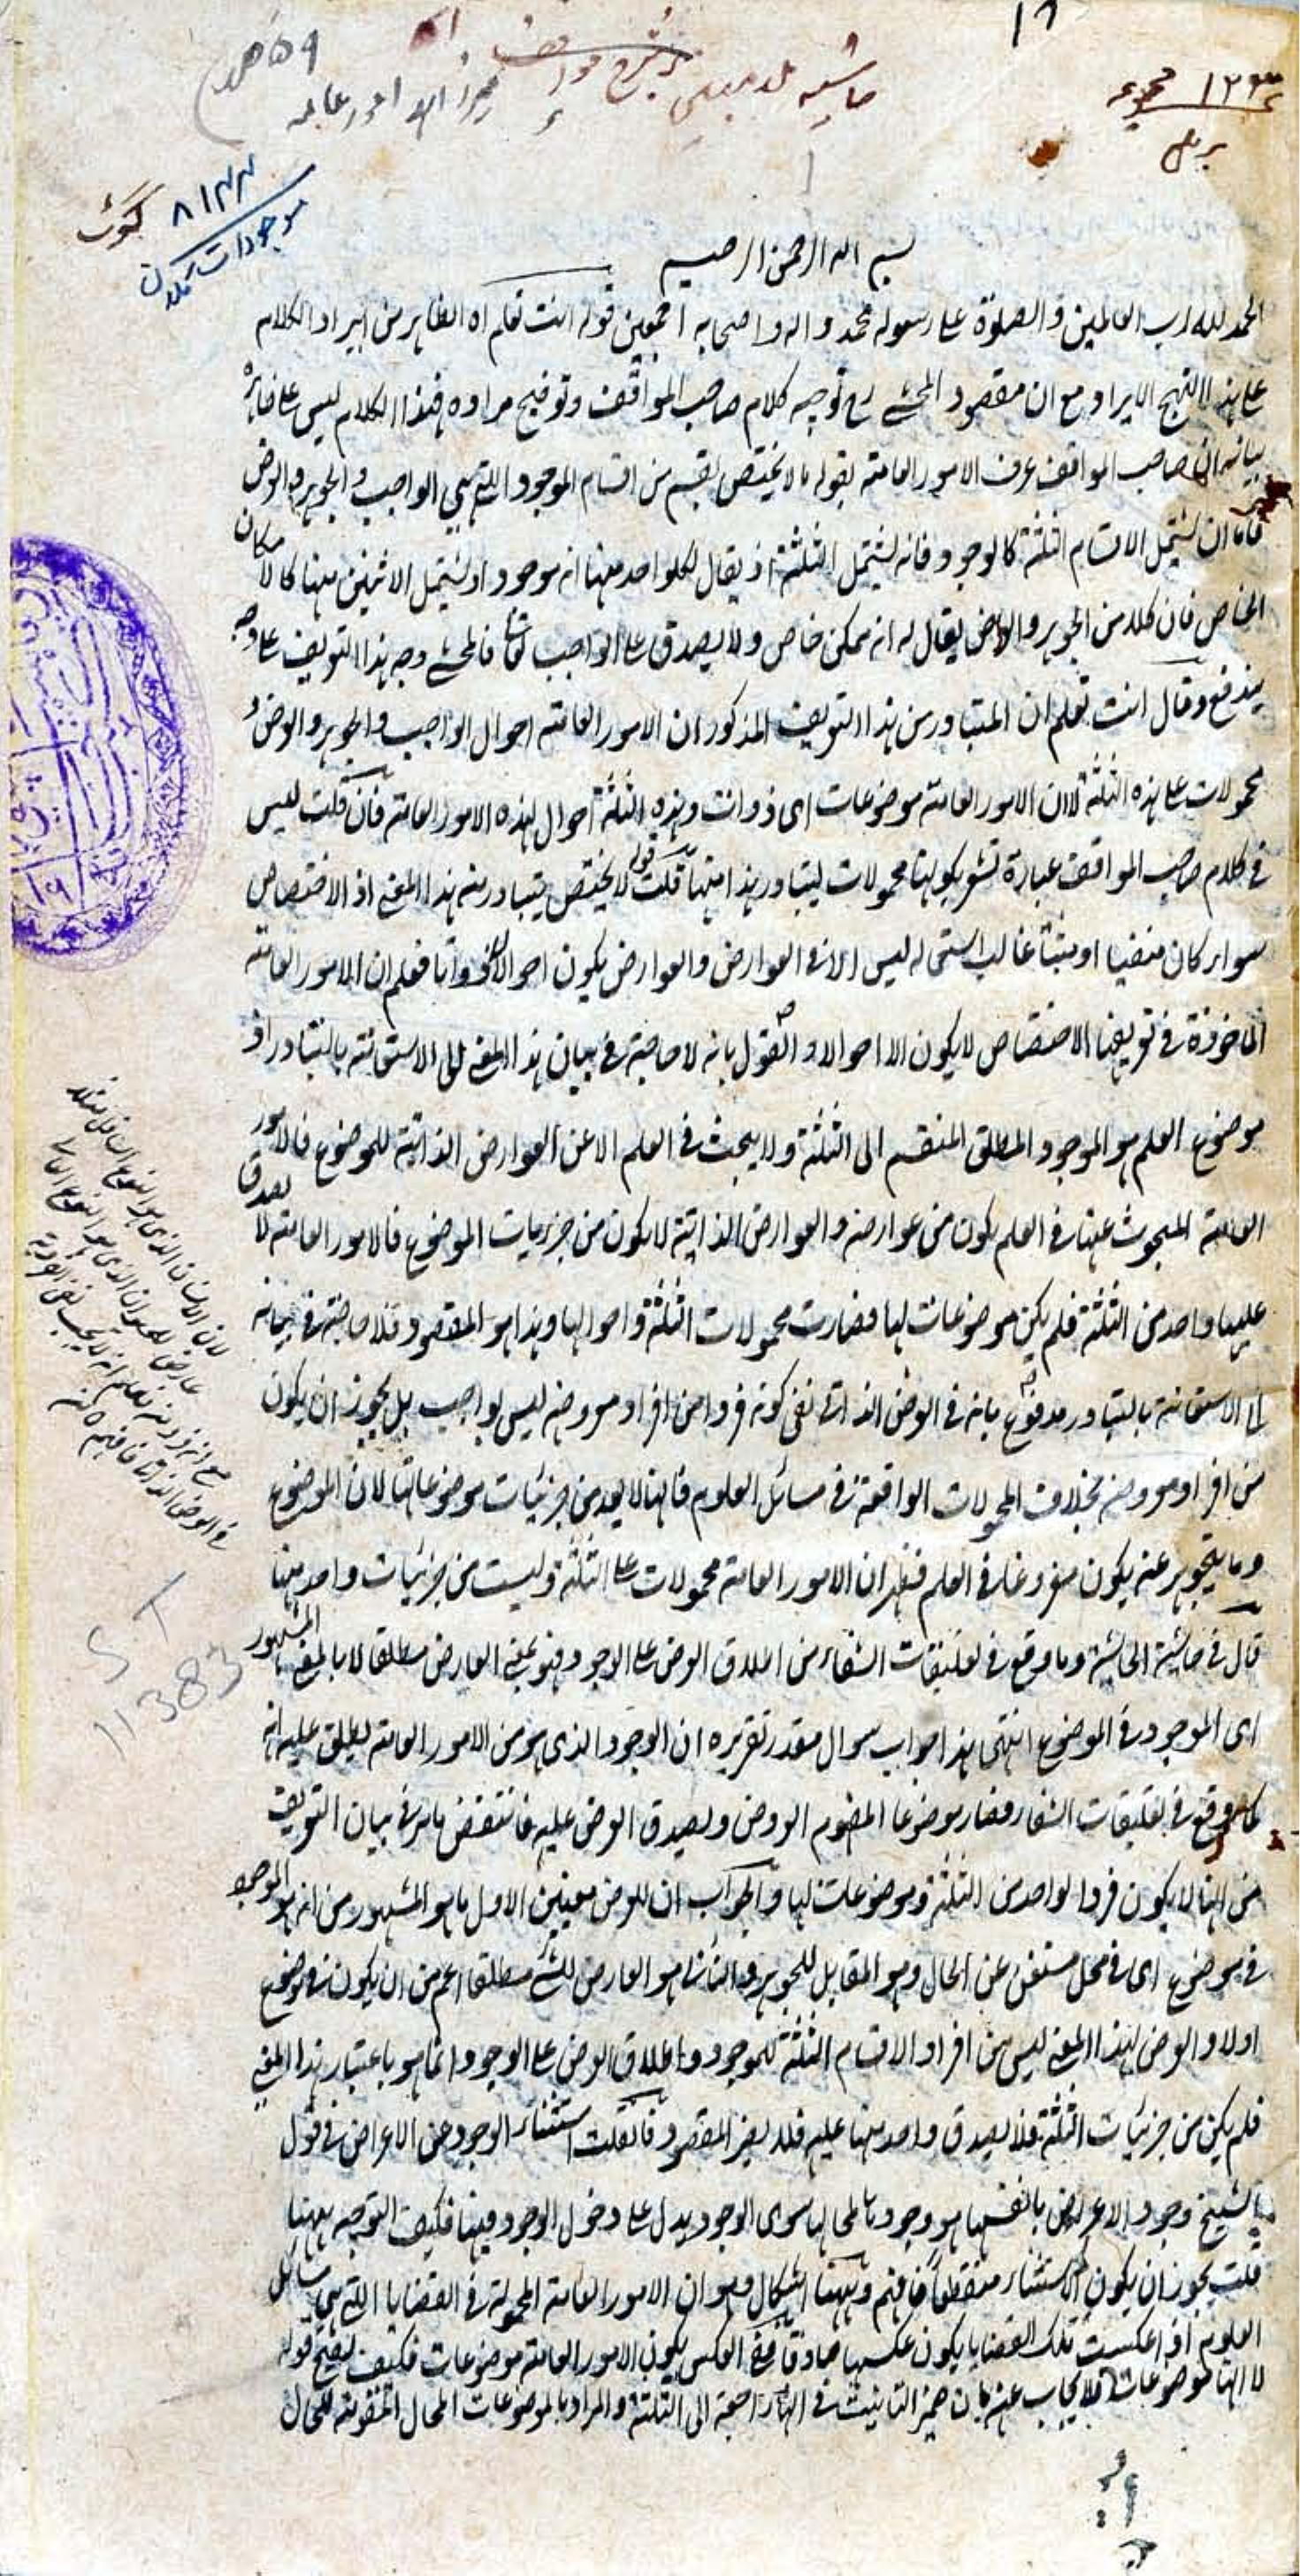 ١٢
مجموعه ١٢٣
حاشیه ملا مبین بر شرح مواقف
میرزاهد امور عامه
٨١٢٤
موجودات تمدن
بسم الله الرحمن الرحيم
الحمد لله رب العالمين والصلوة على رسوله محمد واله واصحابه اجمعين قوله انت تعلم اه الظاهر من ايراد الكلام
على هذا النهج الايراد مع ان مقصود المحشي رح توجيه كلام صاحب المواقف وتوضيح مراده فهذا الكلام ليس على ظاهره
بيانه ان صاحب المواقف عرف الامور العامة بقوله ما لا يختص بقسم من اقسام الموجود التي هي الواجب والجوهر والعرض
فاما ان يشتمل الاقسام الثلثة كالوجود فانه يشتمل الثلثة اذ يقال لكل واحد منها انه موجود او يشتمل الاثنين منها كالامكان
الخاص فان كلا من الجوهر والعرض يقال له انه ممكن خاص ولا يصدق على الواجب تعالى فالمحشي وجه هذا التعريف على وجه
يندفع وقال انت تعلم ان المتبادر من هذا التعريف المذكور ان الامور العامة احوال الواجب والجوهر والعرض و
محمولات على هذه الثلثة لا ان الامور العامة موضوعات اى ذوات وهذه الثلثة احوال لهذه الامور العامة فان قلت ليس
في كلام صاحب المواقف عبارة تشعر بكونها محمولات ليتبادر هذا منها قلت قوله لا يختص يتبادر منه هذا المعنى اذ الاختصاص
سواء كان منفيا او مثبتا غالب استعماله ليس الا في العوارض والعوارض يكون احوالا لا ذواتا فعلم ان الامور العامة
الماخوذة في تعريفها الاختصاص لا يكون الا احوالا والقول بانه لا حاجة في بيان هذا المعنى الى الاستعانة بالتبادر اذ
موضوع العلم هو الموجود المطلق المنقسم الى الثلثة ولا يبحث في العلم الا عن العوارض الذاتية للموضوع فالامور
العامة المبحوث عنها في العلم يكون من عوارضه والعوارض الذاتية لا يكون من جزئيات الموضوع فالامور العامة لا يصدق
عليها واحد من الثلثة فلم يكن موضوعات لها فصارت محمولات الثلثة واحوالها وهذا هو المقصود فلا حاجة في بيانه
الى الاستعانة بالتبادر مدفوع بانه في العرض الذاتي نفى كونه فردا من افراد معروضه ليس بواجب بل يجوز ان يكون
من افراد معروضه بخلاف المحمولات الواقعة في مسائل العلوم فانها لا يعد من جزئيات موضوعاتها لان الموضوع
وما يتجوهر عنه يكون مفروغا في العلم فظهر ان الامور العامة محمولات على الثلثة وليست من جزئيات واحد منها
قال في حاشية الحاشية وما وقع في تعليقات الشفاء من اطلاق العرض على الوجود فهو بمعنى العارض مطلقا لا بالمعنى المشهور
اى الموجود في الموضوع انتهى هذا جواب سوال مقدر تقريره ان الوجود الذى هو من الامور العامة يطلق عليه انه
كما وقع في تعليقات الشفاء فصار موضوعا لمفهوم العرض ويصدق العرض عليه فانتقض ما مر في بيان التعريف
من انها لا يكون فردا لواحد من الثلثة وموضوعات لها والجواب ان للعرض معنيين الاول ما هو المشهور من انه هو الموجود
في موضوع اى في محل مستغن عن الحال وهو المقابل للجوهر والثاني هو العارض للشئ مطلقا اعم من ان يكون في موضوع
اولا والعرض لهذا المعنى ليس من افراد الاقسام الثلثة للموجود واطلاق العرض على الوجود انما هو باعتبار هذا المعنى
فلم يكن من جزئيات الثلثة فلا يصدق واحد منها عليه فلا يضر المقصود فان قلت استثناء الوجود عن الاعراض في قول
الشيخ وجود الاعراض بانفسها هو وجودها لمحالها سوى الوجود يدل على دخول الوجود فيها فكيف التوجيه ههنا
قلت يجوز ان يكون الاستثناء منقطعا فافهم وههنا اشكال وهو ان الامور العامة المحمولة في القضايا التي هي مسائل
العلوم اذا عكست تلك القضايا يكون عكسها صادقا ففي العكس يكون الامور العامة موضوعات فكيف يصح قوله
لا انها موضوعات فلا يجاب عنه بان ضمير التانيث في انها راجعة الى الثلثة والمراد بالموضوعات المحال المتقومة للحال
S T
11383